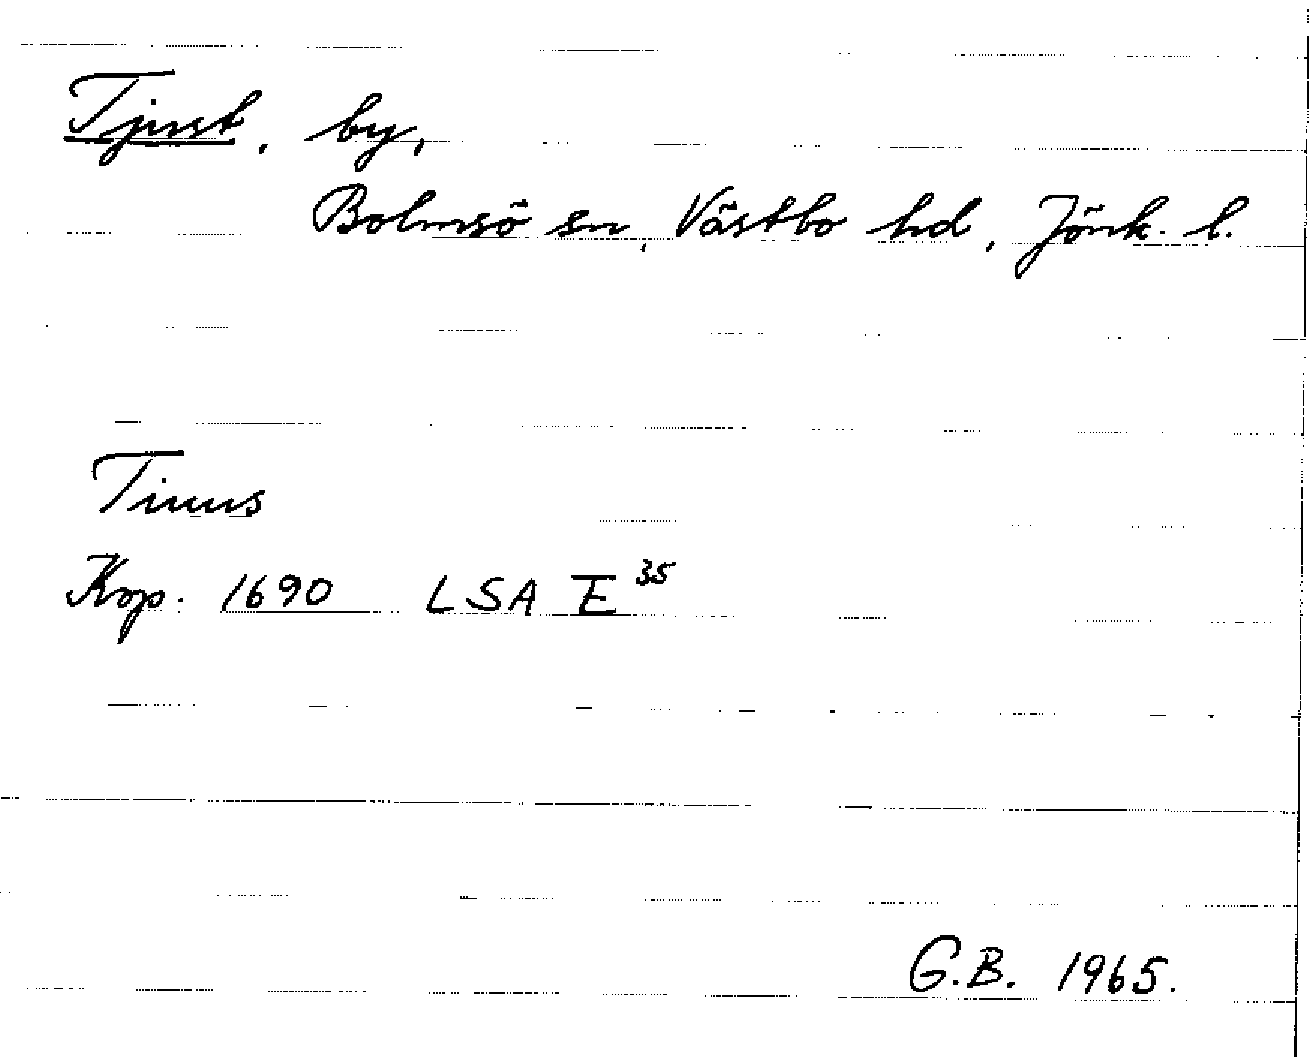 Tjust, by,
Bolmsö sn, Västbo hd, Jönk. l.
Tiuus
Kop. 1690 LSA E 35
G.B. 1965.